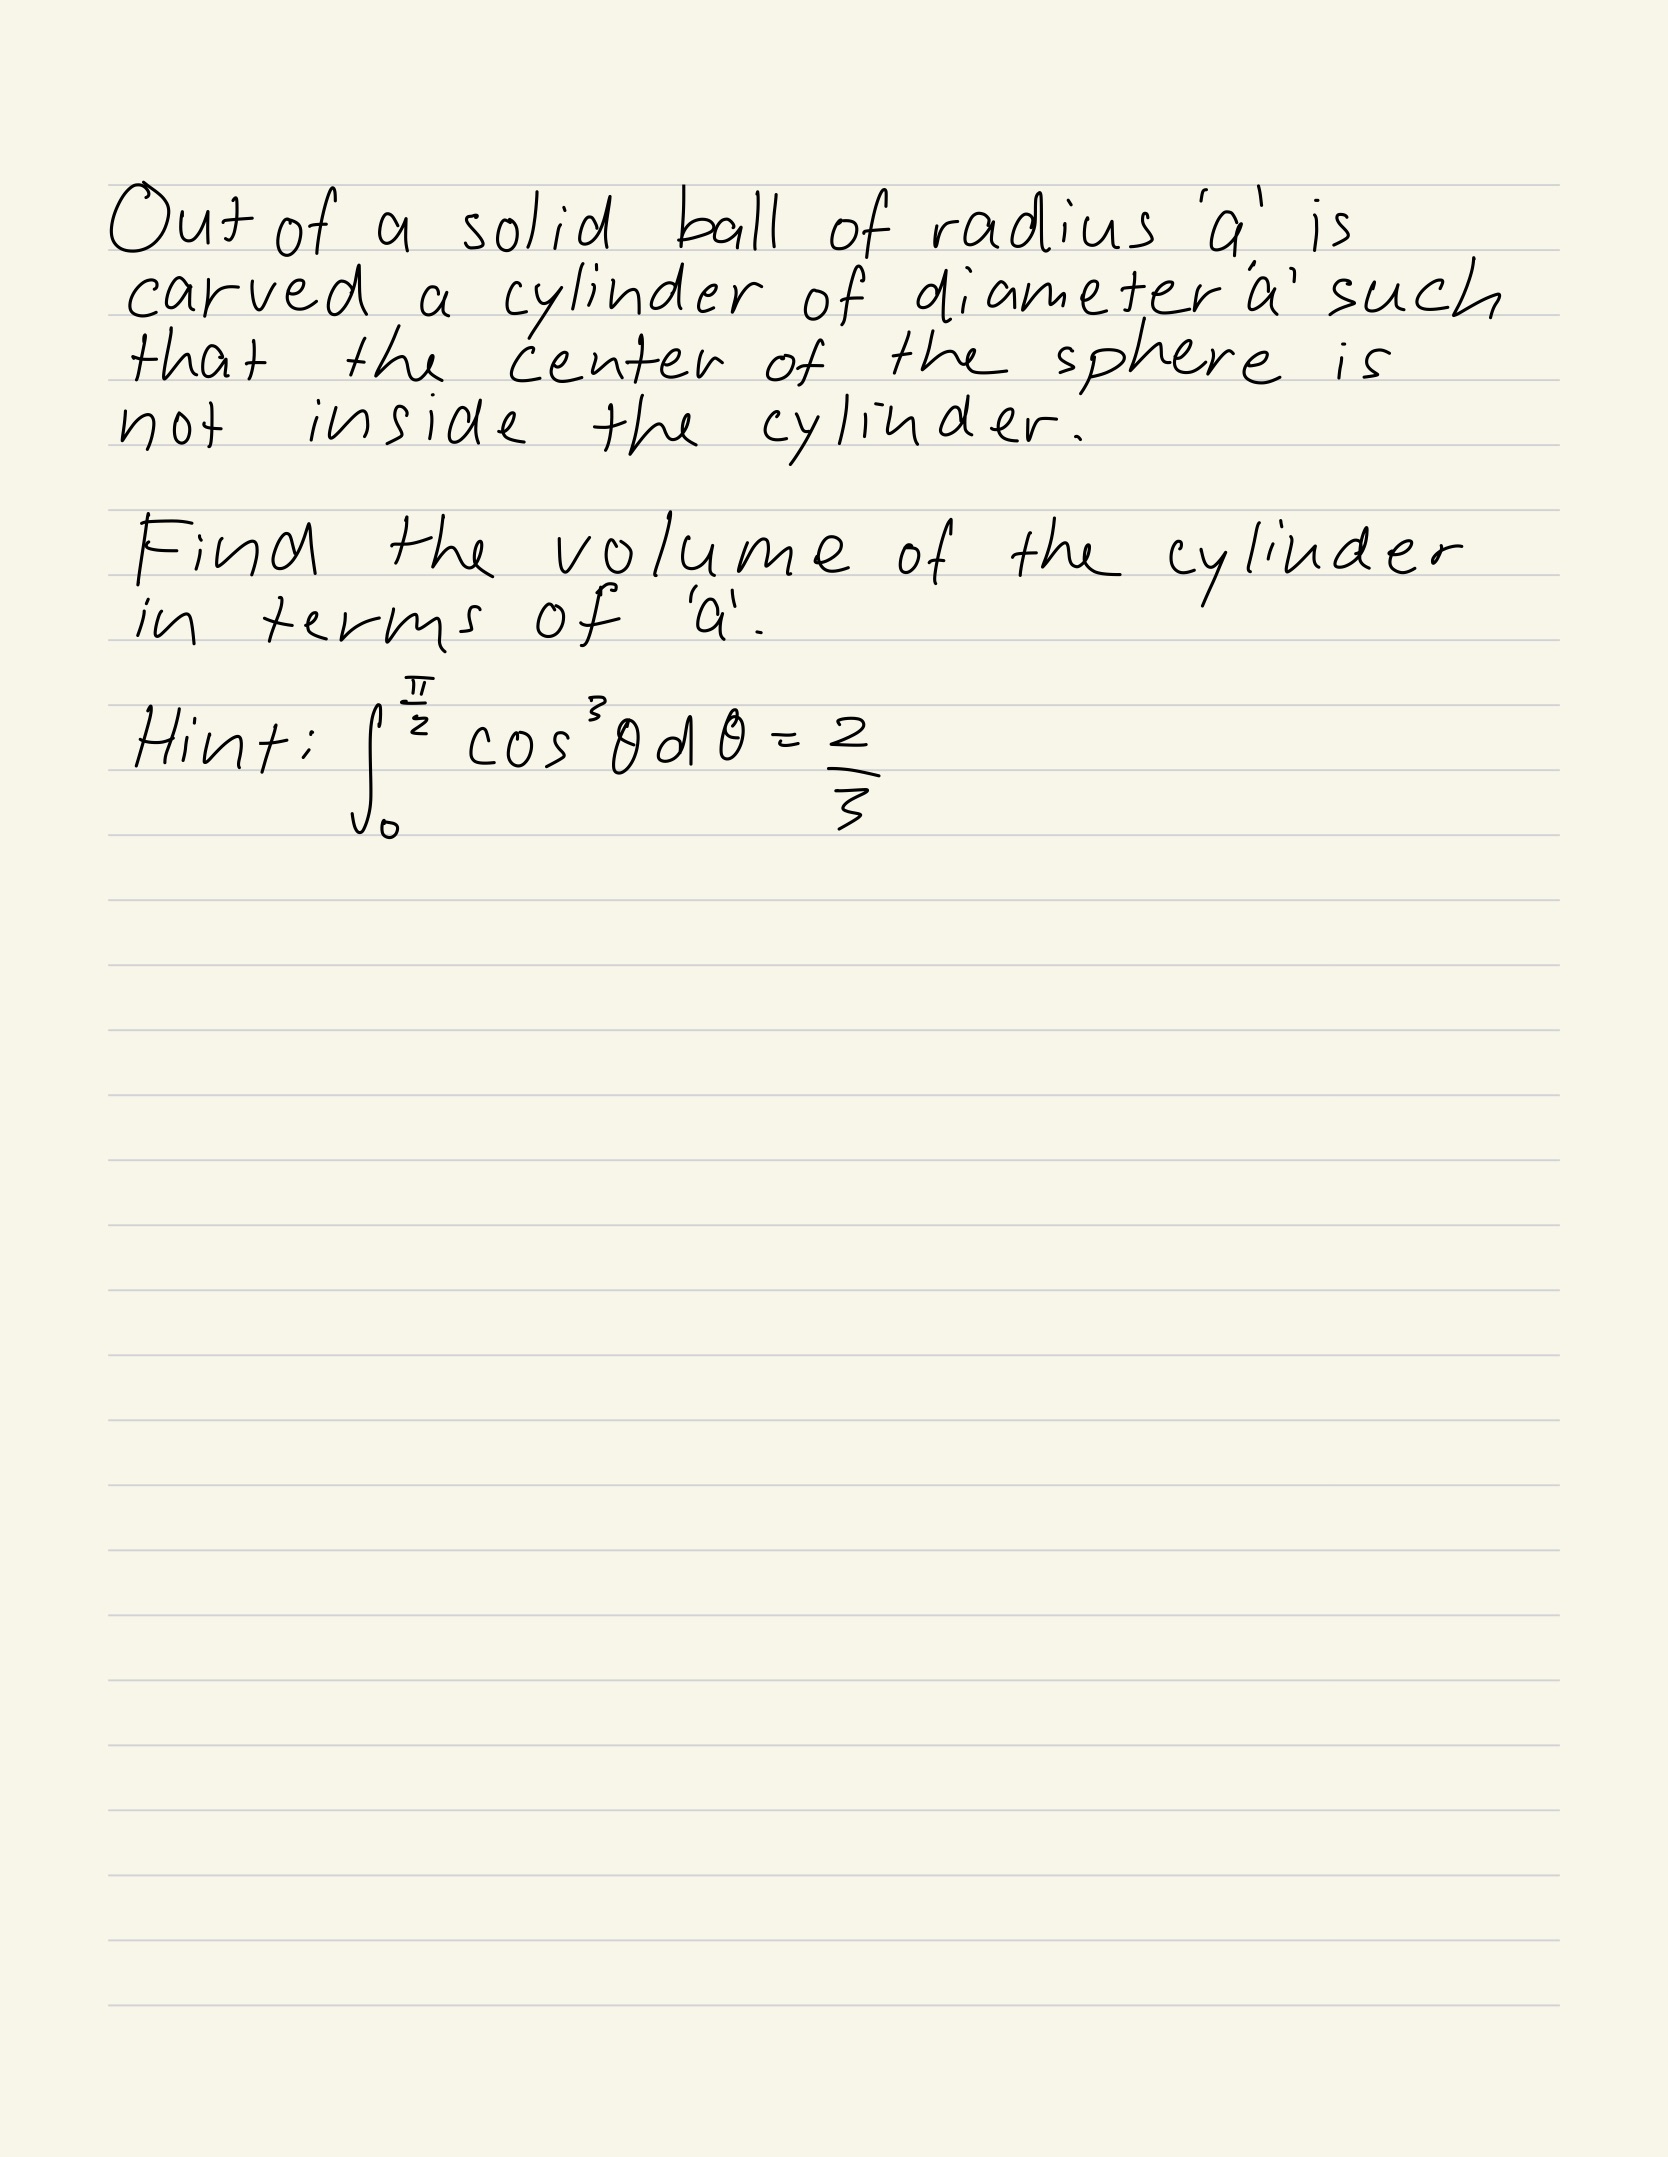 Out of a solid ball of radius 'a' is
carved a cylinder of diameter 'a' such
that the center of the sphere is
not inside the cylinder.
Find the volume of the cylinder
in terms of 'a'.
Hint: ∫₀^(π/2) cos³θdθ = 2/3